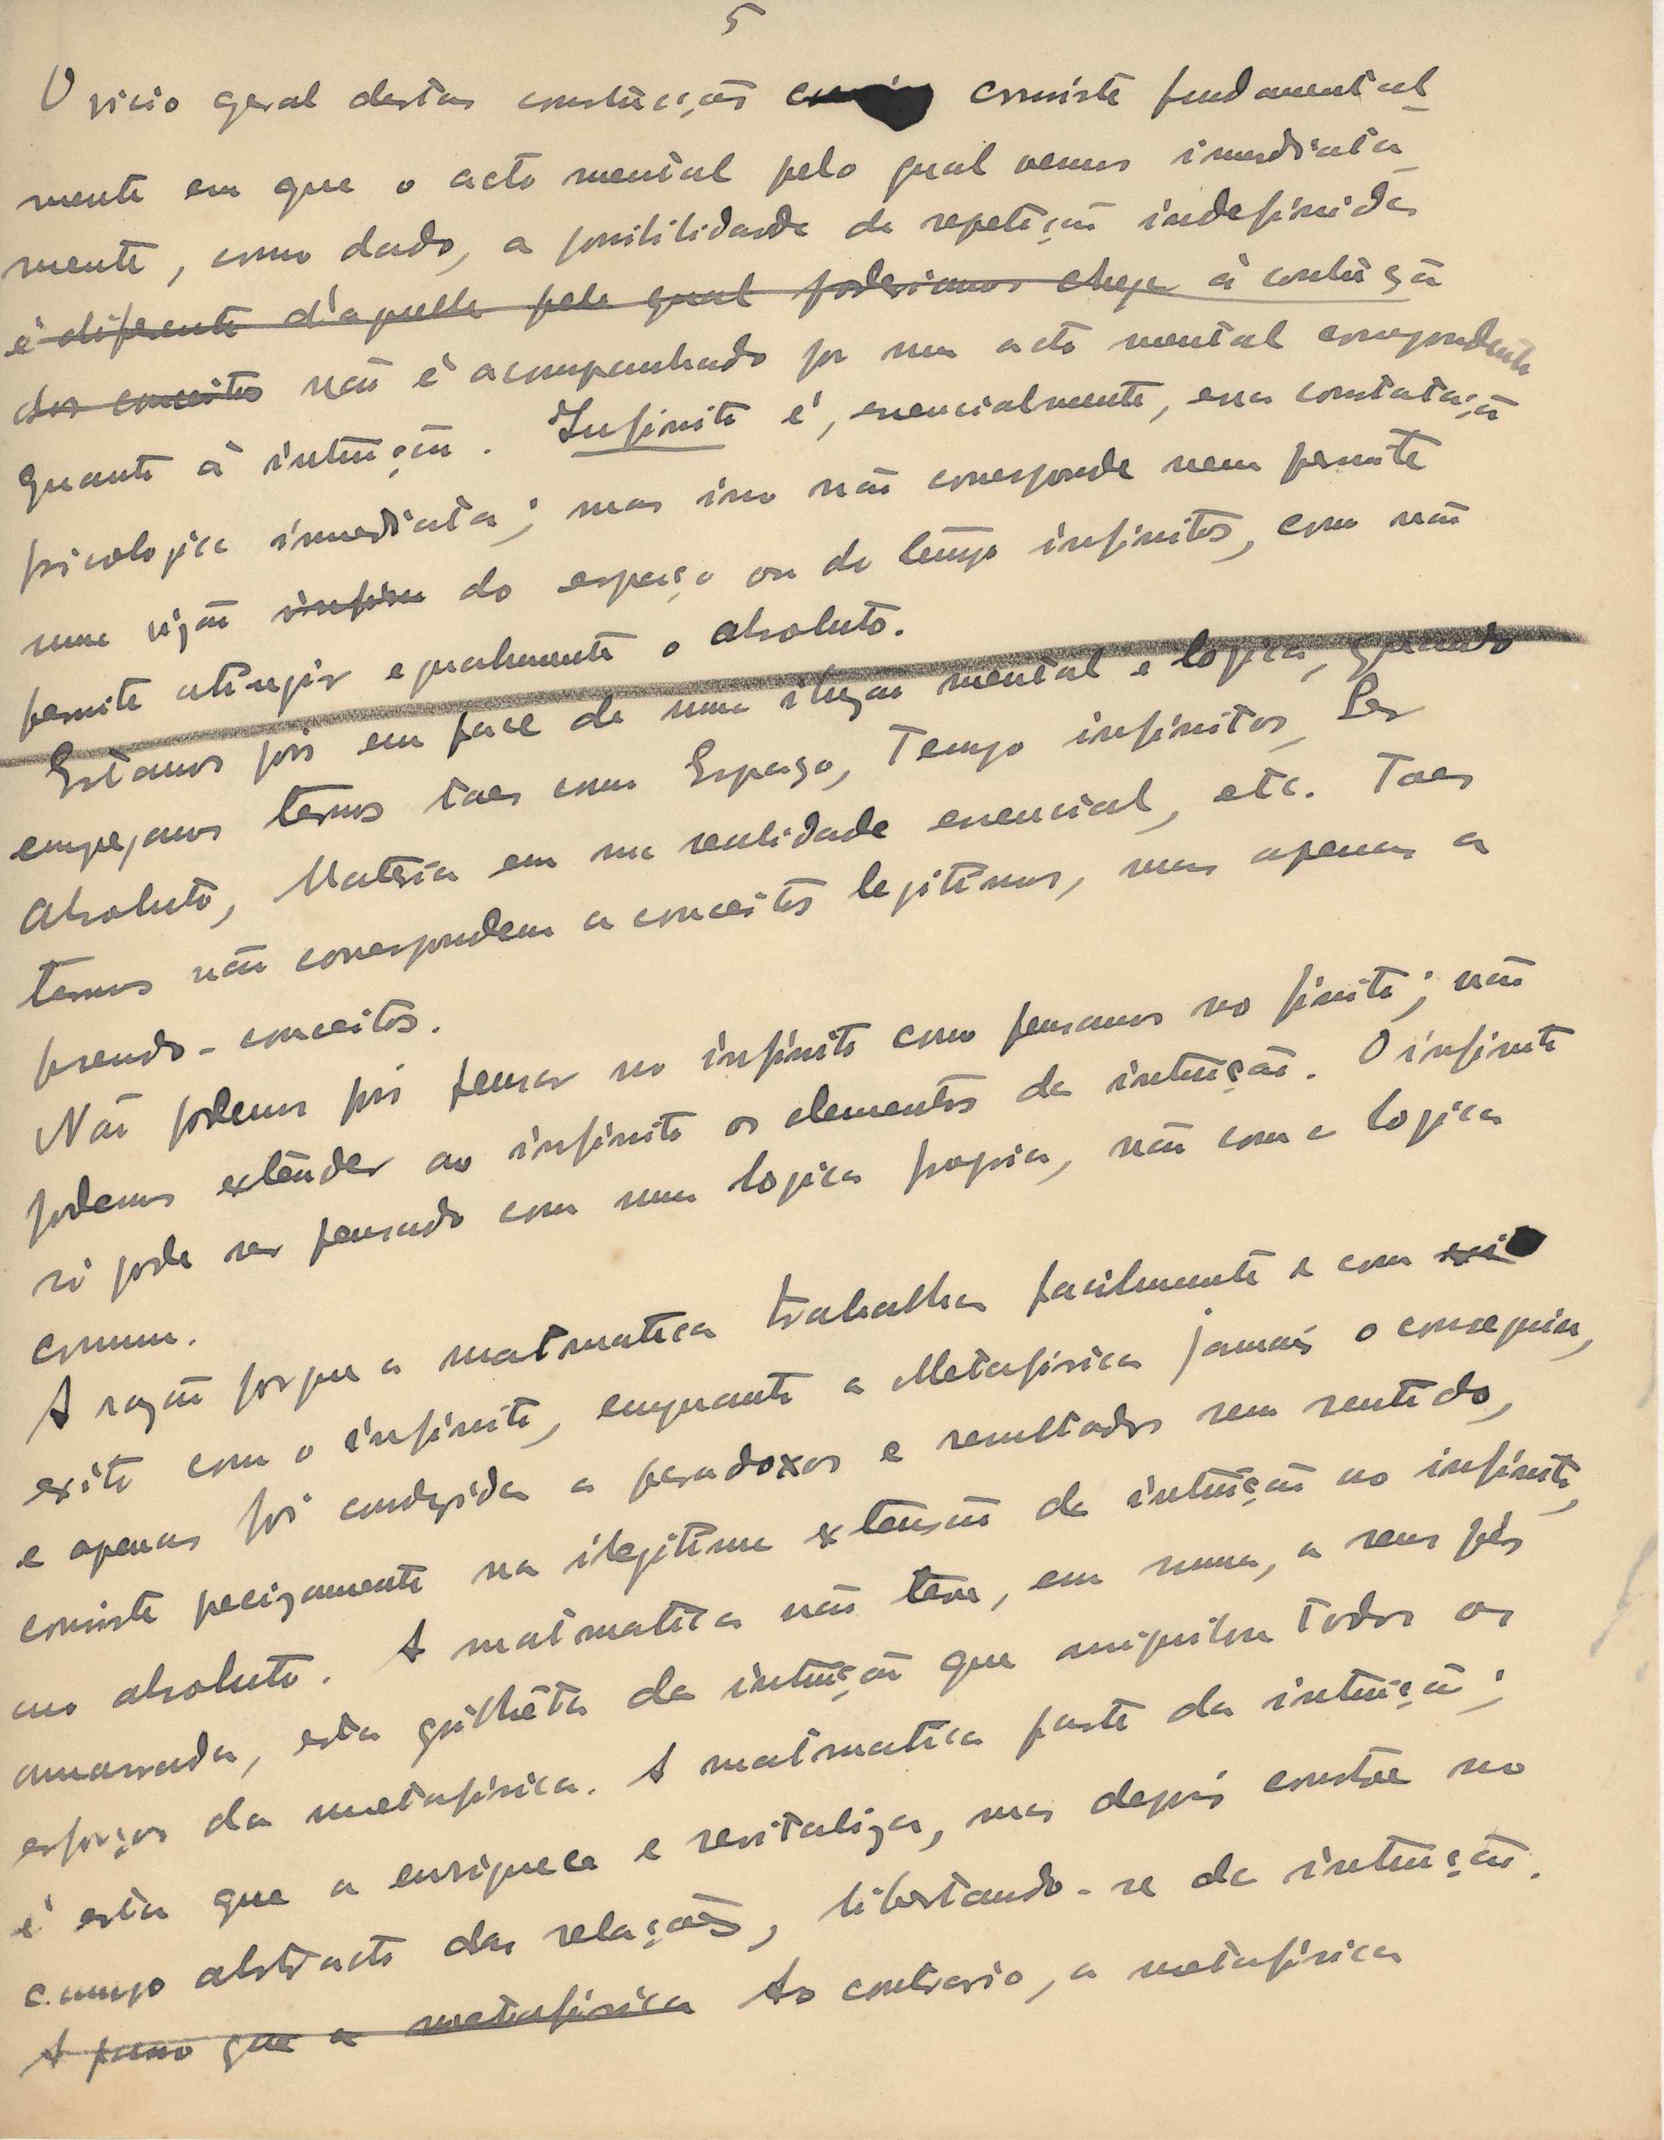 5
O vicio geral destas construcções consiste fundamental
mente em que o acto mental pelo qual vemos imediata
mente, como dado, a possibilidade de repetição indefinida
é diferente d'aquelle pelo qual poderiamos chegar à
dos conceitos não é acompanhado por um acto mental correspondente
quanto à intuição. Infinito é, essencialmente, essa constatação
psicologica imediata; mas isso não corresponde nem permite
uma visão do espaço ou do tempo infinitos, como não
permite atingir egualmente o absoluto.
Estamos pois em face de uma ilusão mental e logica, quando
empregamos termos taes como Espaço, Tempo infinitos, Ser
Absoluto, Materia em sua realidade essencial, etc. Taes
termos não correspondem a conceitos legitimos, mas apenas a
pseudo-conceitos.
Não podemos pois pensar no infinito como pensamos no finito; não
podemos extender ao infinito os elementos da intuição. O infinito
só pode ser pensado com uma logica propria, não com a logica
comum.
A razão porque a matmatica trabalha facilmente e com
exito com o infinito, emquanto a Metafisica jamais o conseguiu,
e apenas foi conduzida a paradoxos e resultados sem sentido,
consiste precizamente na ilegitima extensão da intuição ao infinito,
ao absoluto. A matmatica não tem, em suma, a seus pés
amarrada, esta grilhêta da intuição que aniquilou todos os
esforços da metafisica. A matmatica parte da intuição;
é esta que a enriquece e revitaliza, mas depois constroe no
campo abstracto das relações, libertando-se da intuição.
A passo que a metafisica Ao contrario, a metafisica